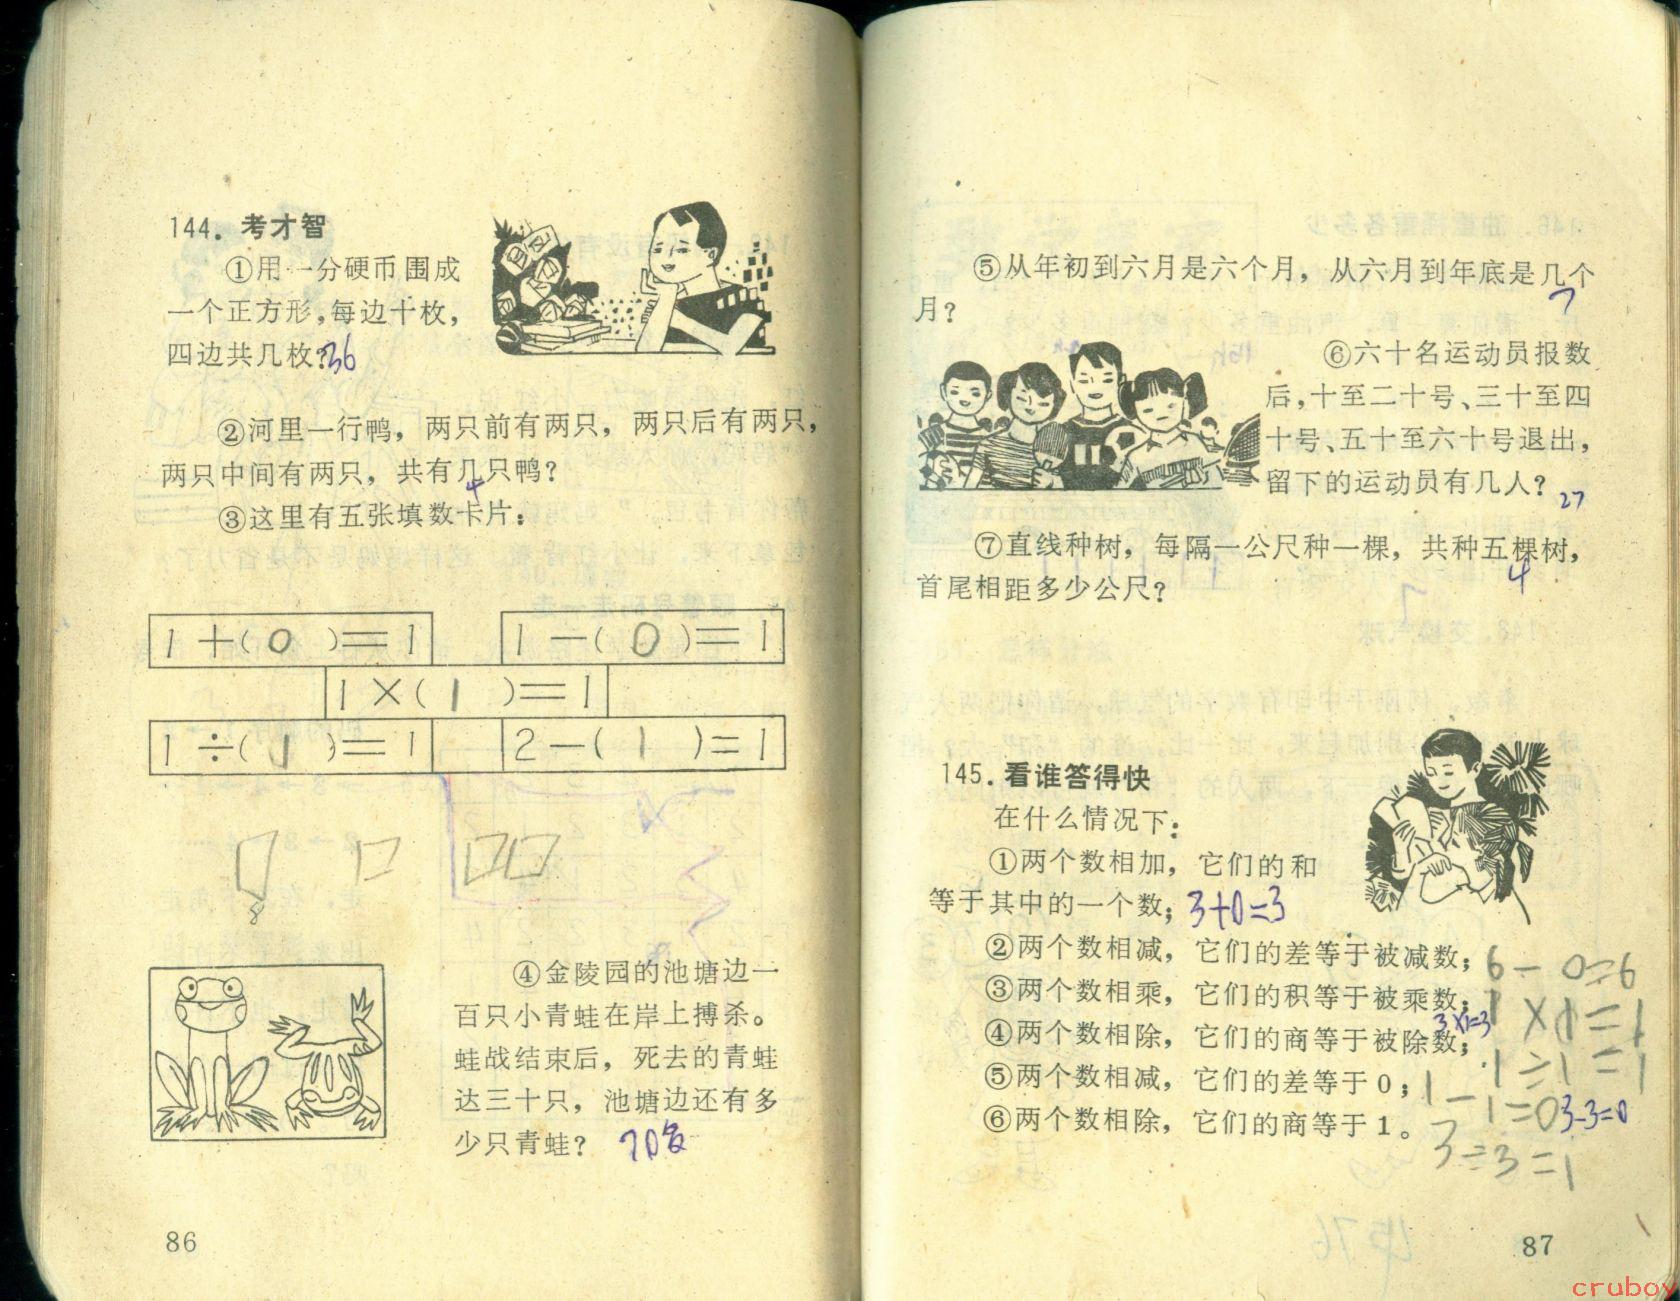 144. 考才智
①用一分硬币围成
一个正方形,每边十枚,
四边共几枚? 36
②河里一行鸭，两只前有两只，两只后有两只，
两只中间有两只，共有几只鸭？
4
③这里有五张填数卡片：
1+( 0 )=1 1-( 0 )=1
1×( 1 )=1
1÷( 1 )=1 2-( 1 )=1
④金陵园的池塘边一
百只小青蛙在岸上搏杀。
蛙战结束后，死去的青蛙
达三十只，池塘边还有多
少只青蛙？ 70
86
⑤从年初到六月是六个月，从六月到年底是几个
月？ 7
⑥六十名运动员报数
后,十至二十号、三十至四
十号、五十至六十号退出，
留下的运动员有几人？ 27
⑦直线种树，每隔一公尺种一棵，共种五棵树，
首尾相距多少公尺？ 4
145. 看谁答得快
在什么情况下：
①两个数相加，它们的和
等于其中的一个数； 3+0=3
②两个数相减，它们的差等于被减数； 6-0=6
③两个数相乘，它们的积等于被乘数； 1×1=1
3×1=3
④两个数相除，它们的商等于被除数； 1÷1=1
⑤两个数相减，它们的差等于0； 1-1=0 3-3=0
⑥两个数相除，它们的商等于1。 3÷3=1
87
cruboy